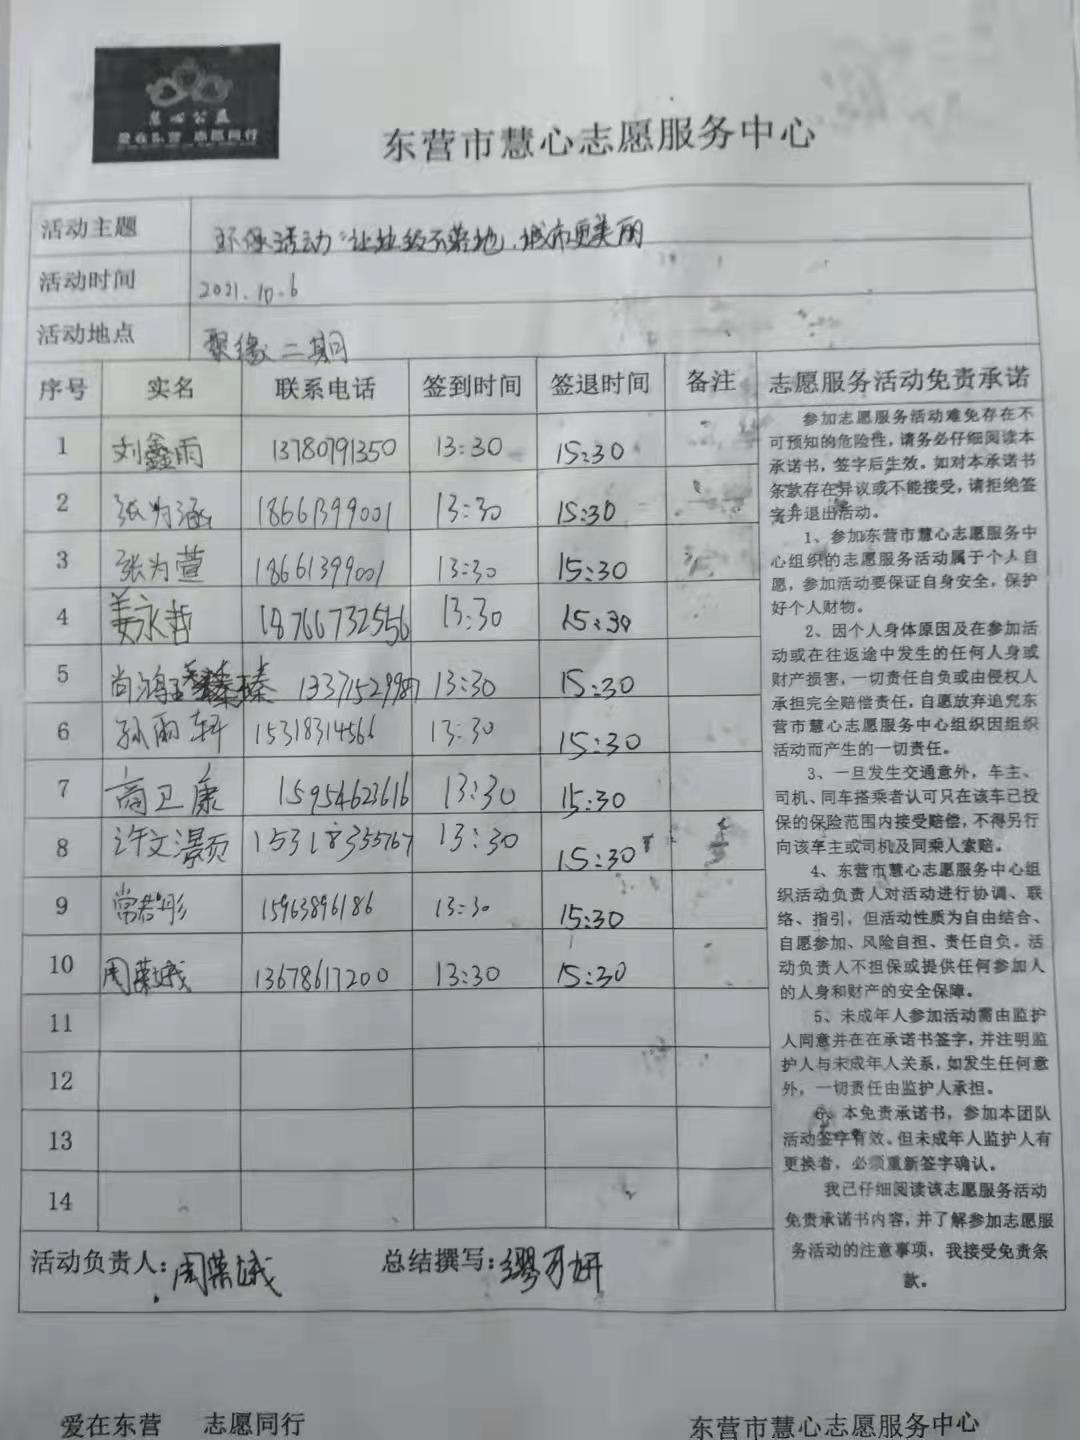 慧心公益
爱在东营 志愿同行
东营市慧心志愿服务中心
活动主题 环保活动"让垃圾不落地,城市更美丽
活动时间 2021.10.6
活动地点 聚缘二期
序号 实名 联系电话 签到时间 签退时间 备注 志愿服务活动免责承诺
1 刘鑫雨 13780791350 13:30 15:30
2 张为涵 18661399001 13:30 15:30
3 张为萱 18661399001 13:30 15:30
4 姜永哲 18766732556 13:30 15:30
5 尚鸿 臻 13371529987 13:30 15:30
6 孙雨轩 15318314566 13:30 15:30
7 高卫康 15954623616 13:30 15:30
8 许文灏 15318355767 13:30 15:30
9 常君彤 15963896186 13:30 15:30
10 周荣娥 13678617200 13:30 15:30
11
12
13
14
参加志愿服务活动难免存在不
可预知的危险性,请务必仔细阅读本
承诺书,签字后生效。如对本承诺书
条款存在异议或不能接受,请拒绝签
字并退出活动。
1、参加东营市慧心志愿服务中
心组织的志愿服务活动属于个人自
愿,参加活动要保证自身安全,保护
好个人财物。
2、因个人身体原因及在参加活
动或在往返途中发生的任何人身或
财产损害,一切责任自负或由侵权人
承担完全赔偿责任,自愿放弃追究东
营市慧心志愿服务中心组织因组织
活动而产生的一切责任。
3、一旦发生交通意外,车主、
司机、同车搭乘者认可只在该车已投
保的保险范围内接受赔偿,不得另行
向该车主或司机及同乘人索赔。
4、东营市慧心志愿服务中心组
织活动负责人对活动进行协调、联
络、指引,但活动性质为自由结合、
自愿参加、风险自担、责任自负。活
动负责人不担保或提供任何参加人
的人身和财产的安全保障。
5、未成年人参加活动需由监护
人同意并在在承诺书签字,并注明监
护人与未成年人关系,如发生任何意
外,一切责任由监护人承担。
6、本免责承诺书,参加本团队
活动签字有效。但未成年人监护人有
更换者,必须重新签字确认。
我已仔细阅读该志愿服务活动
免责承诺书内容,并了解参加志愿服
务活动的注意事项,我接受免责条
款。
活动负责人:周荣娥 总结撰写:缪可妍
爱在东营 志愿同行 东营市慧心志愿服务中心